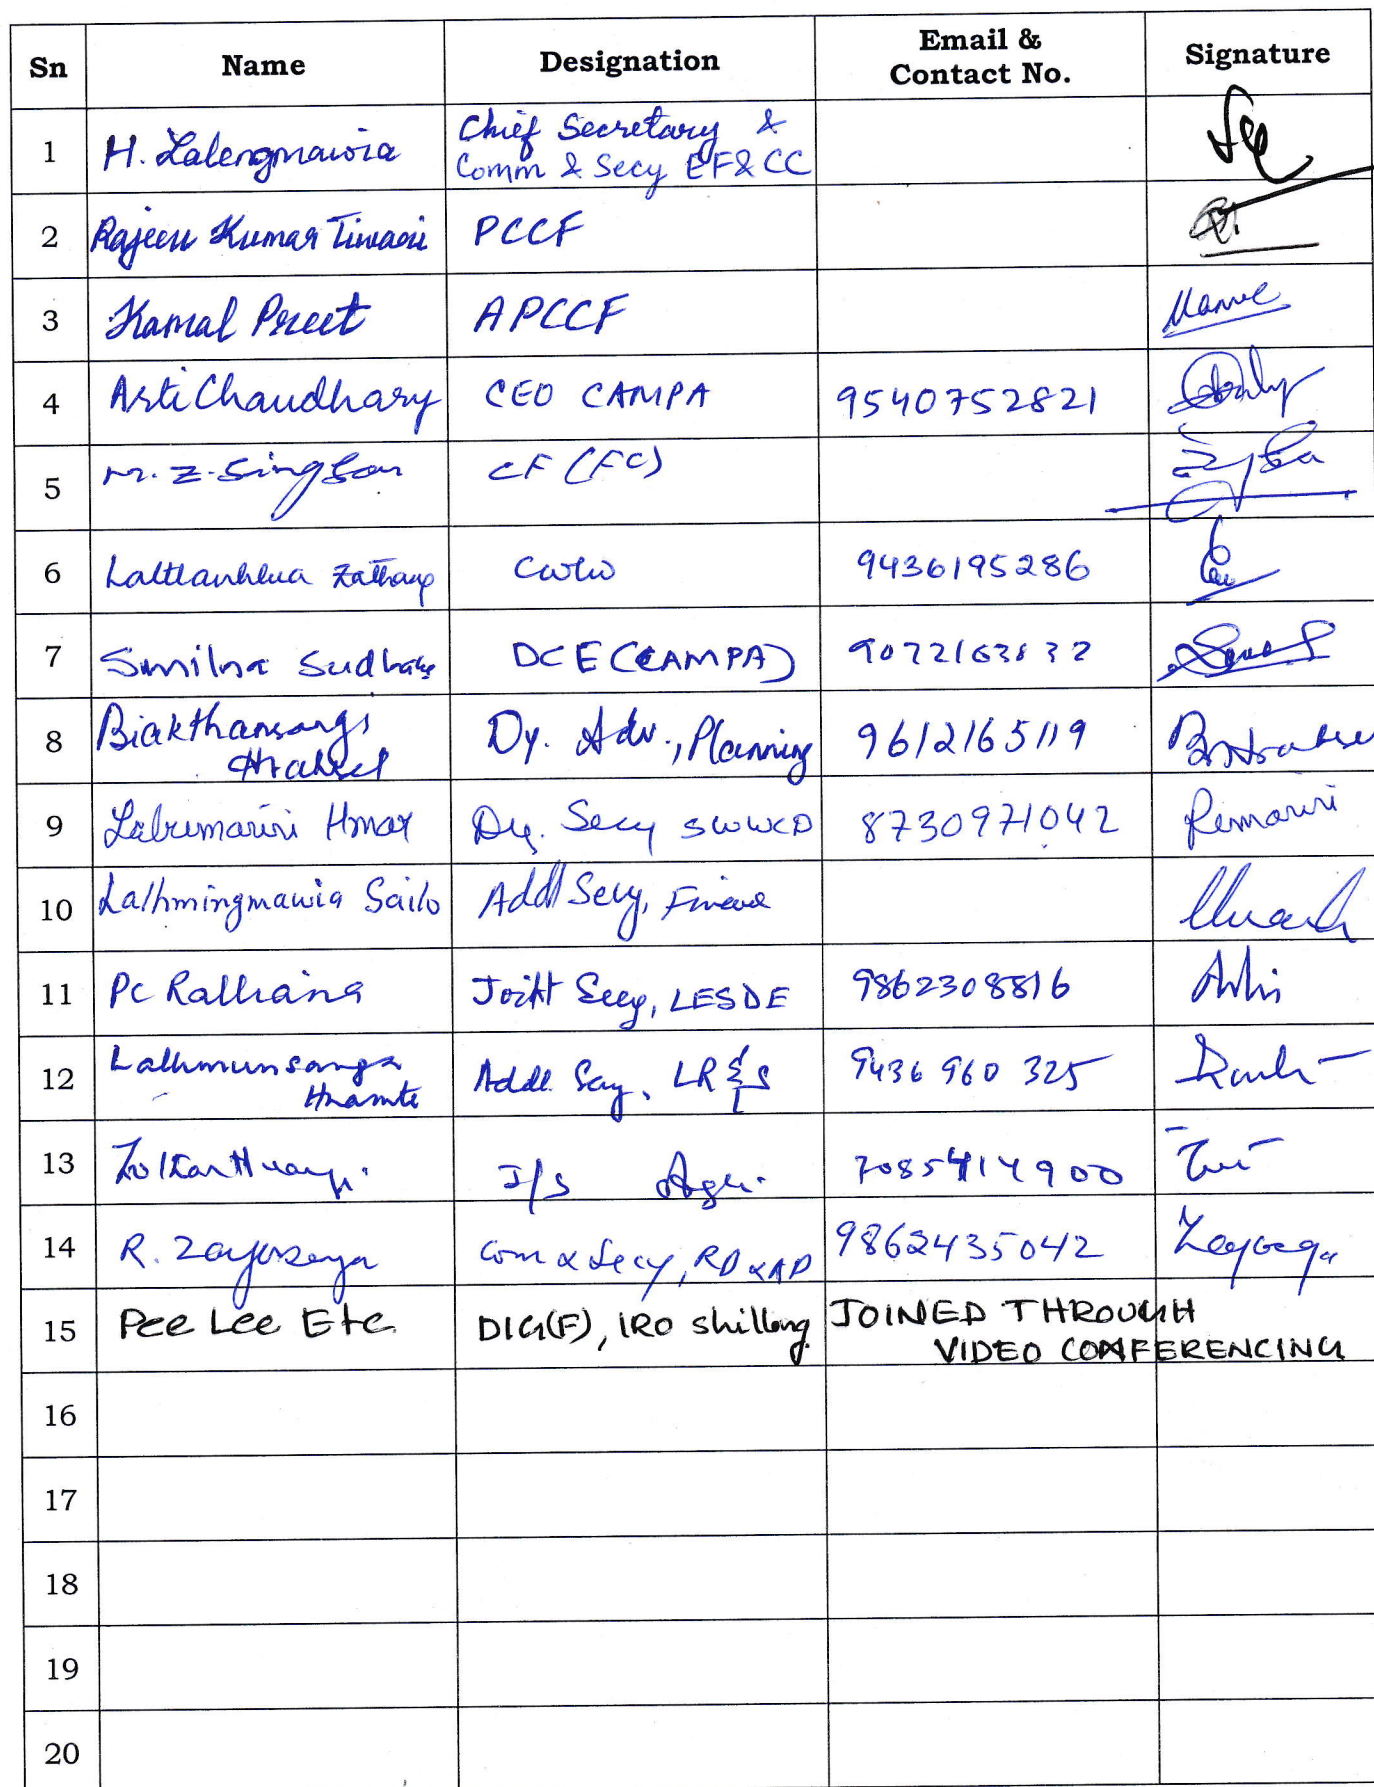 Sn Name Designation Email & Contact No. Signature
1 H. Lalengmawia Chief Secretary & Comm & Secy EF&CC
2 Rajeev Kumar Tiwari PCCF
3 Kamal Preet APCCF
4 Arti Chaudhary CEO CAMPA 9540752821
5 M. Z. Singson CF (FC)
6 Laltlanhlua Zathang CWLW 9436195286
7 Sudhakar (CAMPA)
8 Biakthansangi Hrahsel Dy. Adv., Planning 9612165119
9 Lalremruii Hmar Dy. Secy SWWCD 8730971042
10 Lalhmingmawia Sailo Addl Secy, Finance
11 PC Ralliana Joint Secy, LESDE 9862308816
12 Lalhmunsanga Hnamte Addl. Secy, LR&S 9436 960 325
13 J/S Agri. 7085414900
14 R. Com & Secy, RD & AD 9862435042
15 Pee Lee Ete DIG(F), IRO Shillong JOINED THROUGH
VIDEO CONFERENCING
16
17
18
19
20